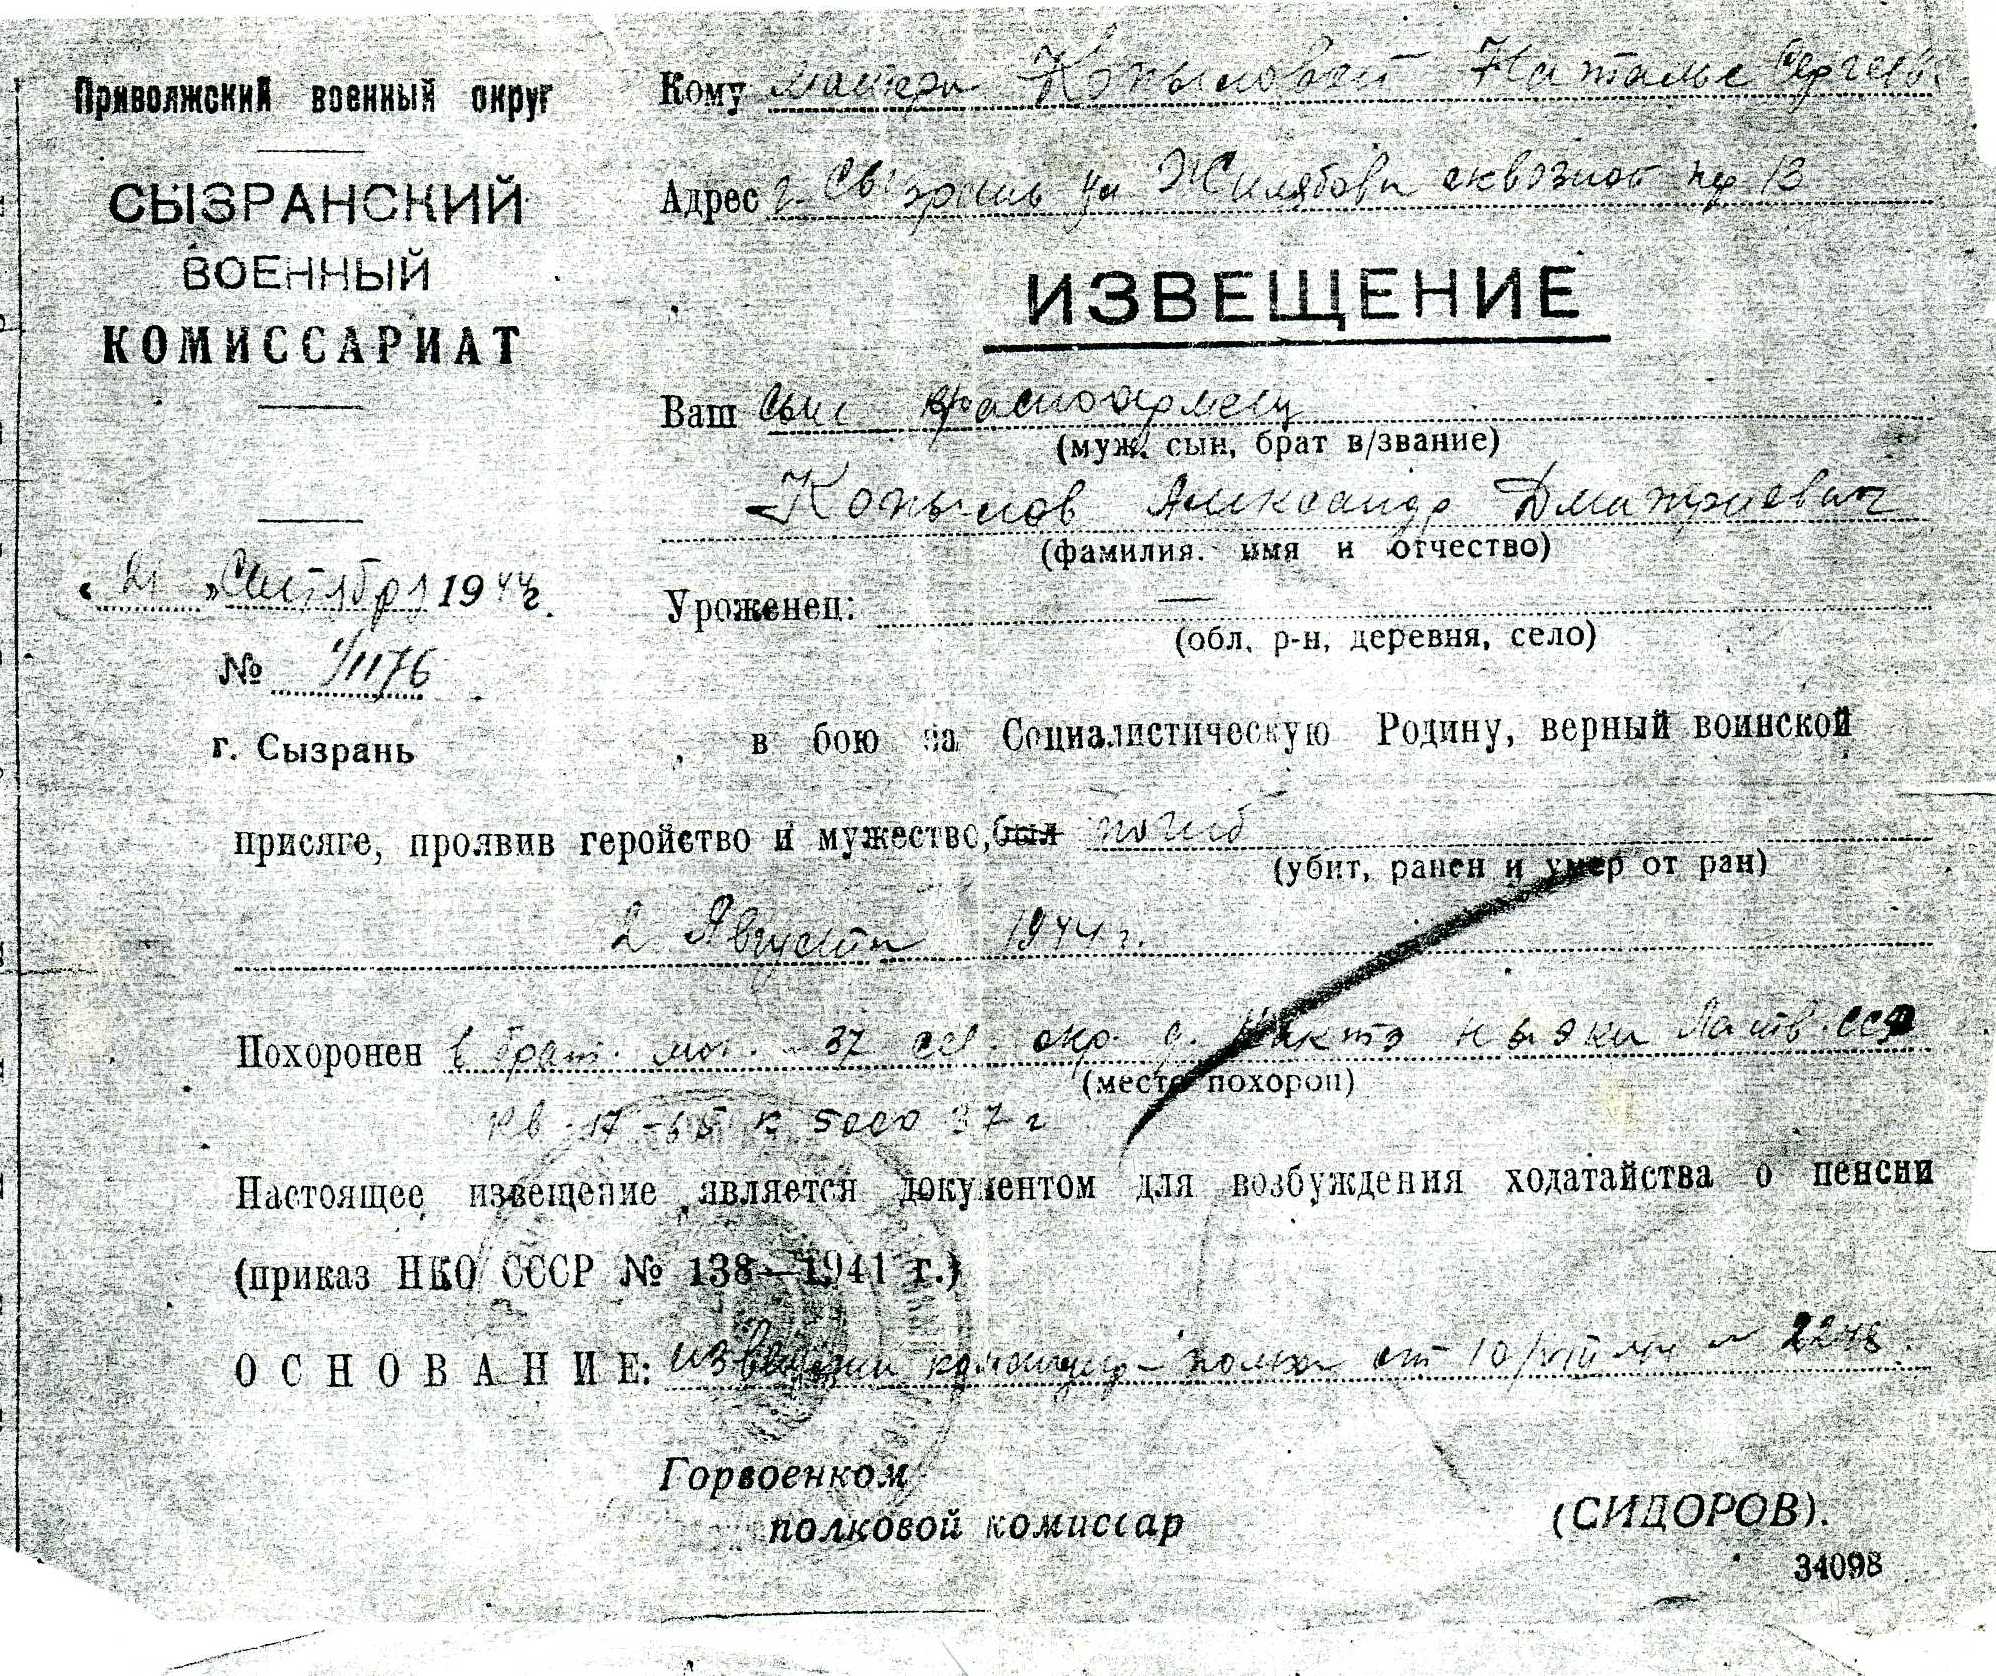 Приволжский военный округ
СЫЗРАНСКИЙ
ВОЕННЫЙ
КОМИССАРИАТ
« 21 » Сентября 1944 г.
№ 1/1176
г. Сызрань
Кому матери Копыловой Наталье Сергеев.
Адрес г. Сызрань ул Желябова сквозной 13
ИЗВЕЩЕНИЕ
Ваш сын красноармеец
(муж, сын, брат в/звание)
Копылов Александр Дмитриевич
(фамилия. имя и отчество)
Уроженец: —
(обл, р-н, деревня, село)
в бою за Социалистическую Родину, верный воинской
присяге, проявив геройство и мужество, был погиб
(убит, ранен и умер от ран)
2 Августа 1944 г.
Похоронен в брат. мог. 37 сев. окр. д. Латв. ССР
(место похорон)
кв 17-65 к 5000 37 г
Настоящее извещение является документом для возбуждения ходатайства о пенсии
(приказ НКО СССР № 138—1941 г.)
ОСНОВАНИЕ: полка от 10/VIII 44
Горвоенком
полковой комиссар (СИДОРОВ).
34098